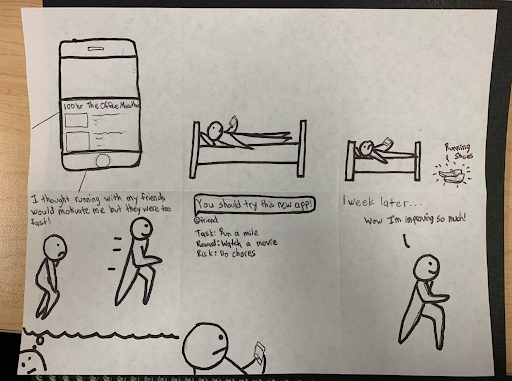 100 hr The Office Marathon
Running
Shoes
I thought running with my friends
would motivate me but they were too
fast!
You should try this new app!
@friend
Task: Run a mile
Reward: Watch a movie
Risk: Do chores
1 week later...
Wow I'm improving so much!